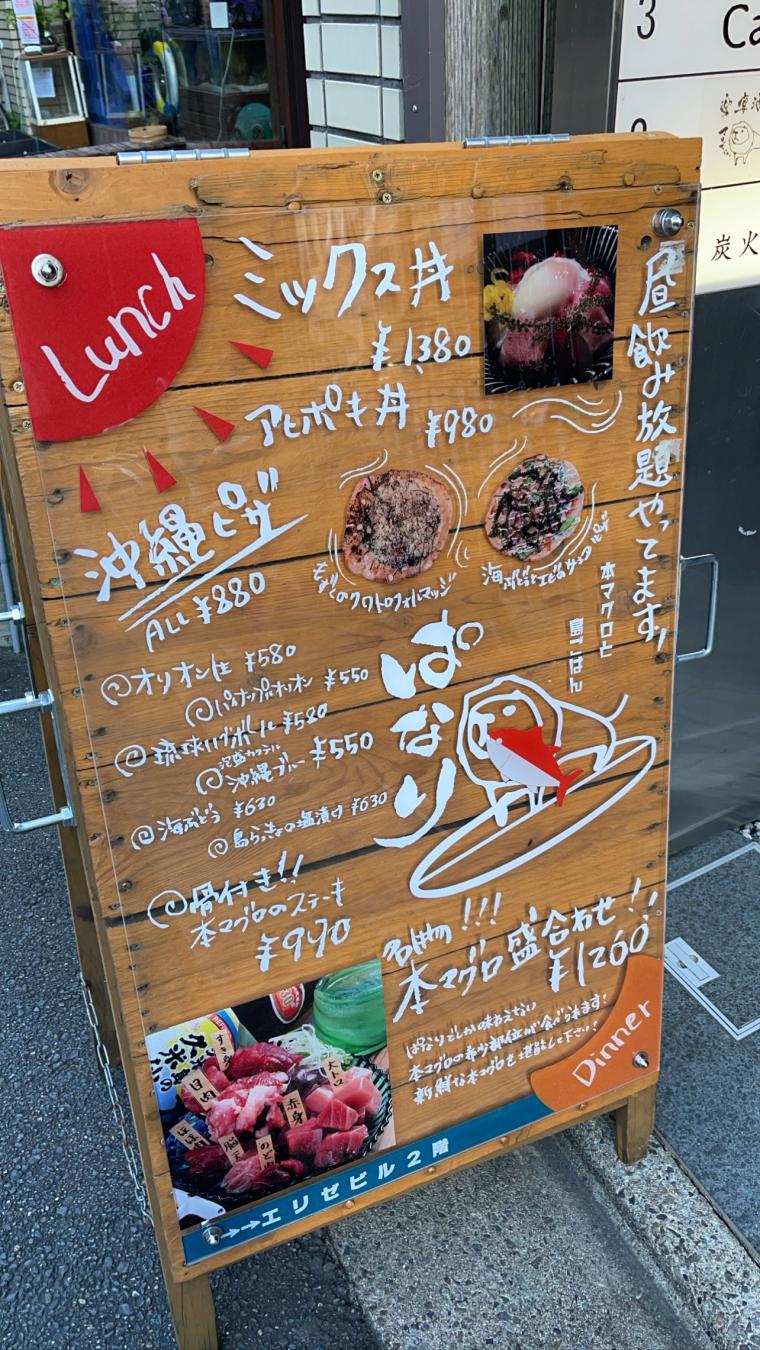 Lunch
ミックス丼
¥1,380
アヒポキ丼 ¥980
沖縄ピザ
ALL ¥880
もずくのクワトロフォルマッジ
海ぶどうとエビのサラダピザ
昼飲み放題やってます!
本マグロと
島ごはん
ぱなり
オリオン生 ¥580
パイナップルオリオン ¥550
琉球ハイボール ¥580
泡盛カクテル
沖縄ブルー ¥550
海ぶどう ¥630
島らっきょの塩漬け ¥630
骨付き!!
本マグロのステーキ
¥990
名物!!!
本マグロ盛合わせ!!
¥1260
ぱなりでしか味わえない
本マグロの希少部位が食べれます!
新鮮な本マグロを堪能して下さい!
Dinner
久米
すき身
目肉
大トロ
赤身
ほほ肉
脳天
のど
→→エリゼビル2階
3
Ca
炭火